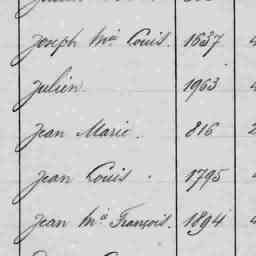 Joseph Mie Louis. 1637
Julien. 1963
Jean Marie. 816
Jean Louis. 1795
Jean Me François. 1894